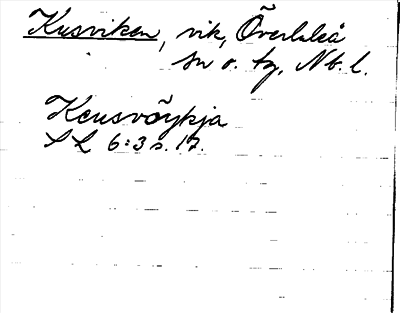 Kusviken, vik, Överluleå
sn o. tg, Nb. l.
Keusvöykja
SL 6:3 s. 17.